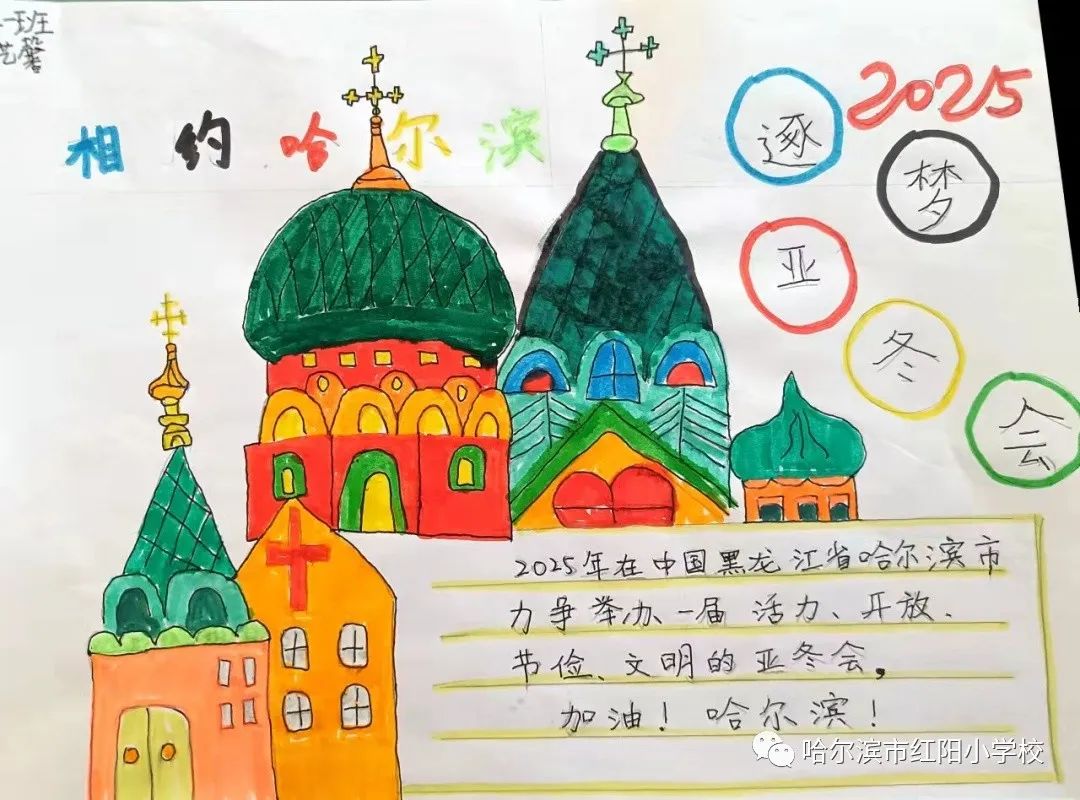 一班
艺馨
相约哈尔滨
2025
逐梦亚冬会
2025年在中国黑龙江省哈尔滨市
力争举办一届 活力、开放、
节俭、文明的亚冬会,
加油! 哈尔滨!
哈尔滨市红阳小学校